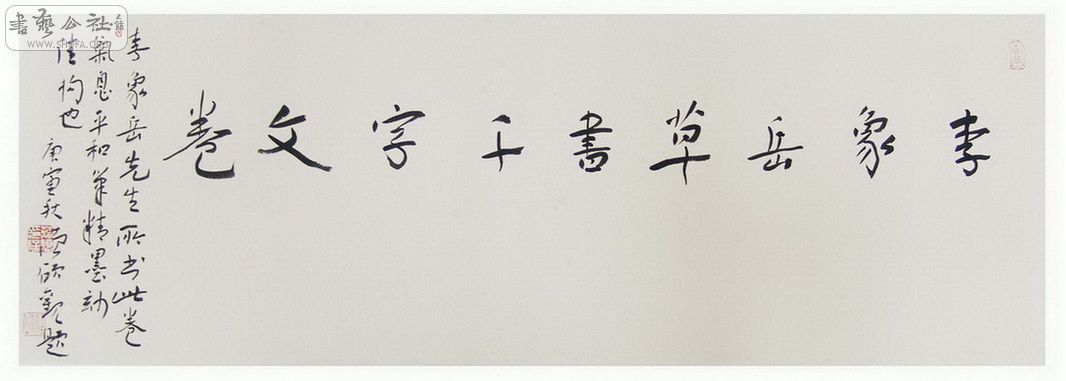 李象岳草書千字文卷
李象岳先生所书此卷
氣息平和筆精墨劲
佳构也
庚寅秋 欣觀题
書藝公社
www.SHUFA.ORG